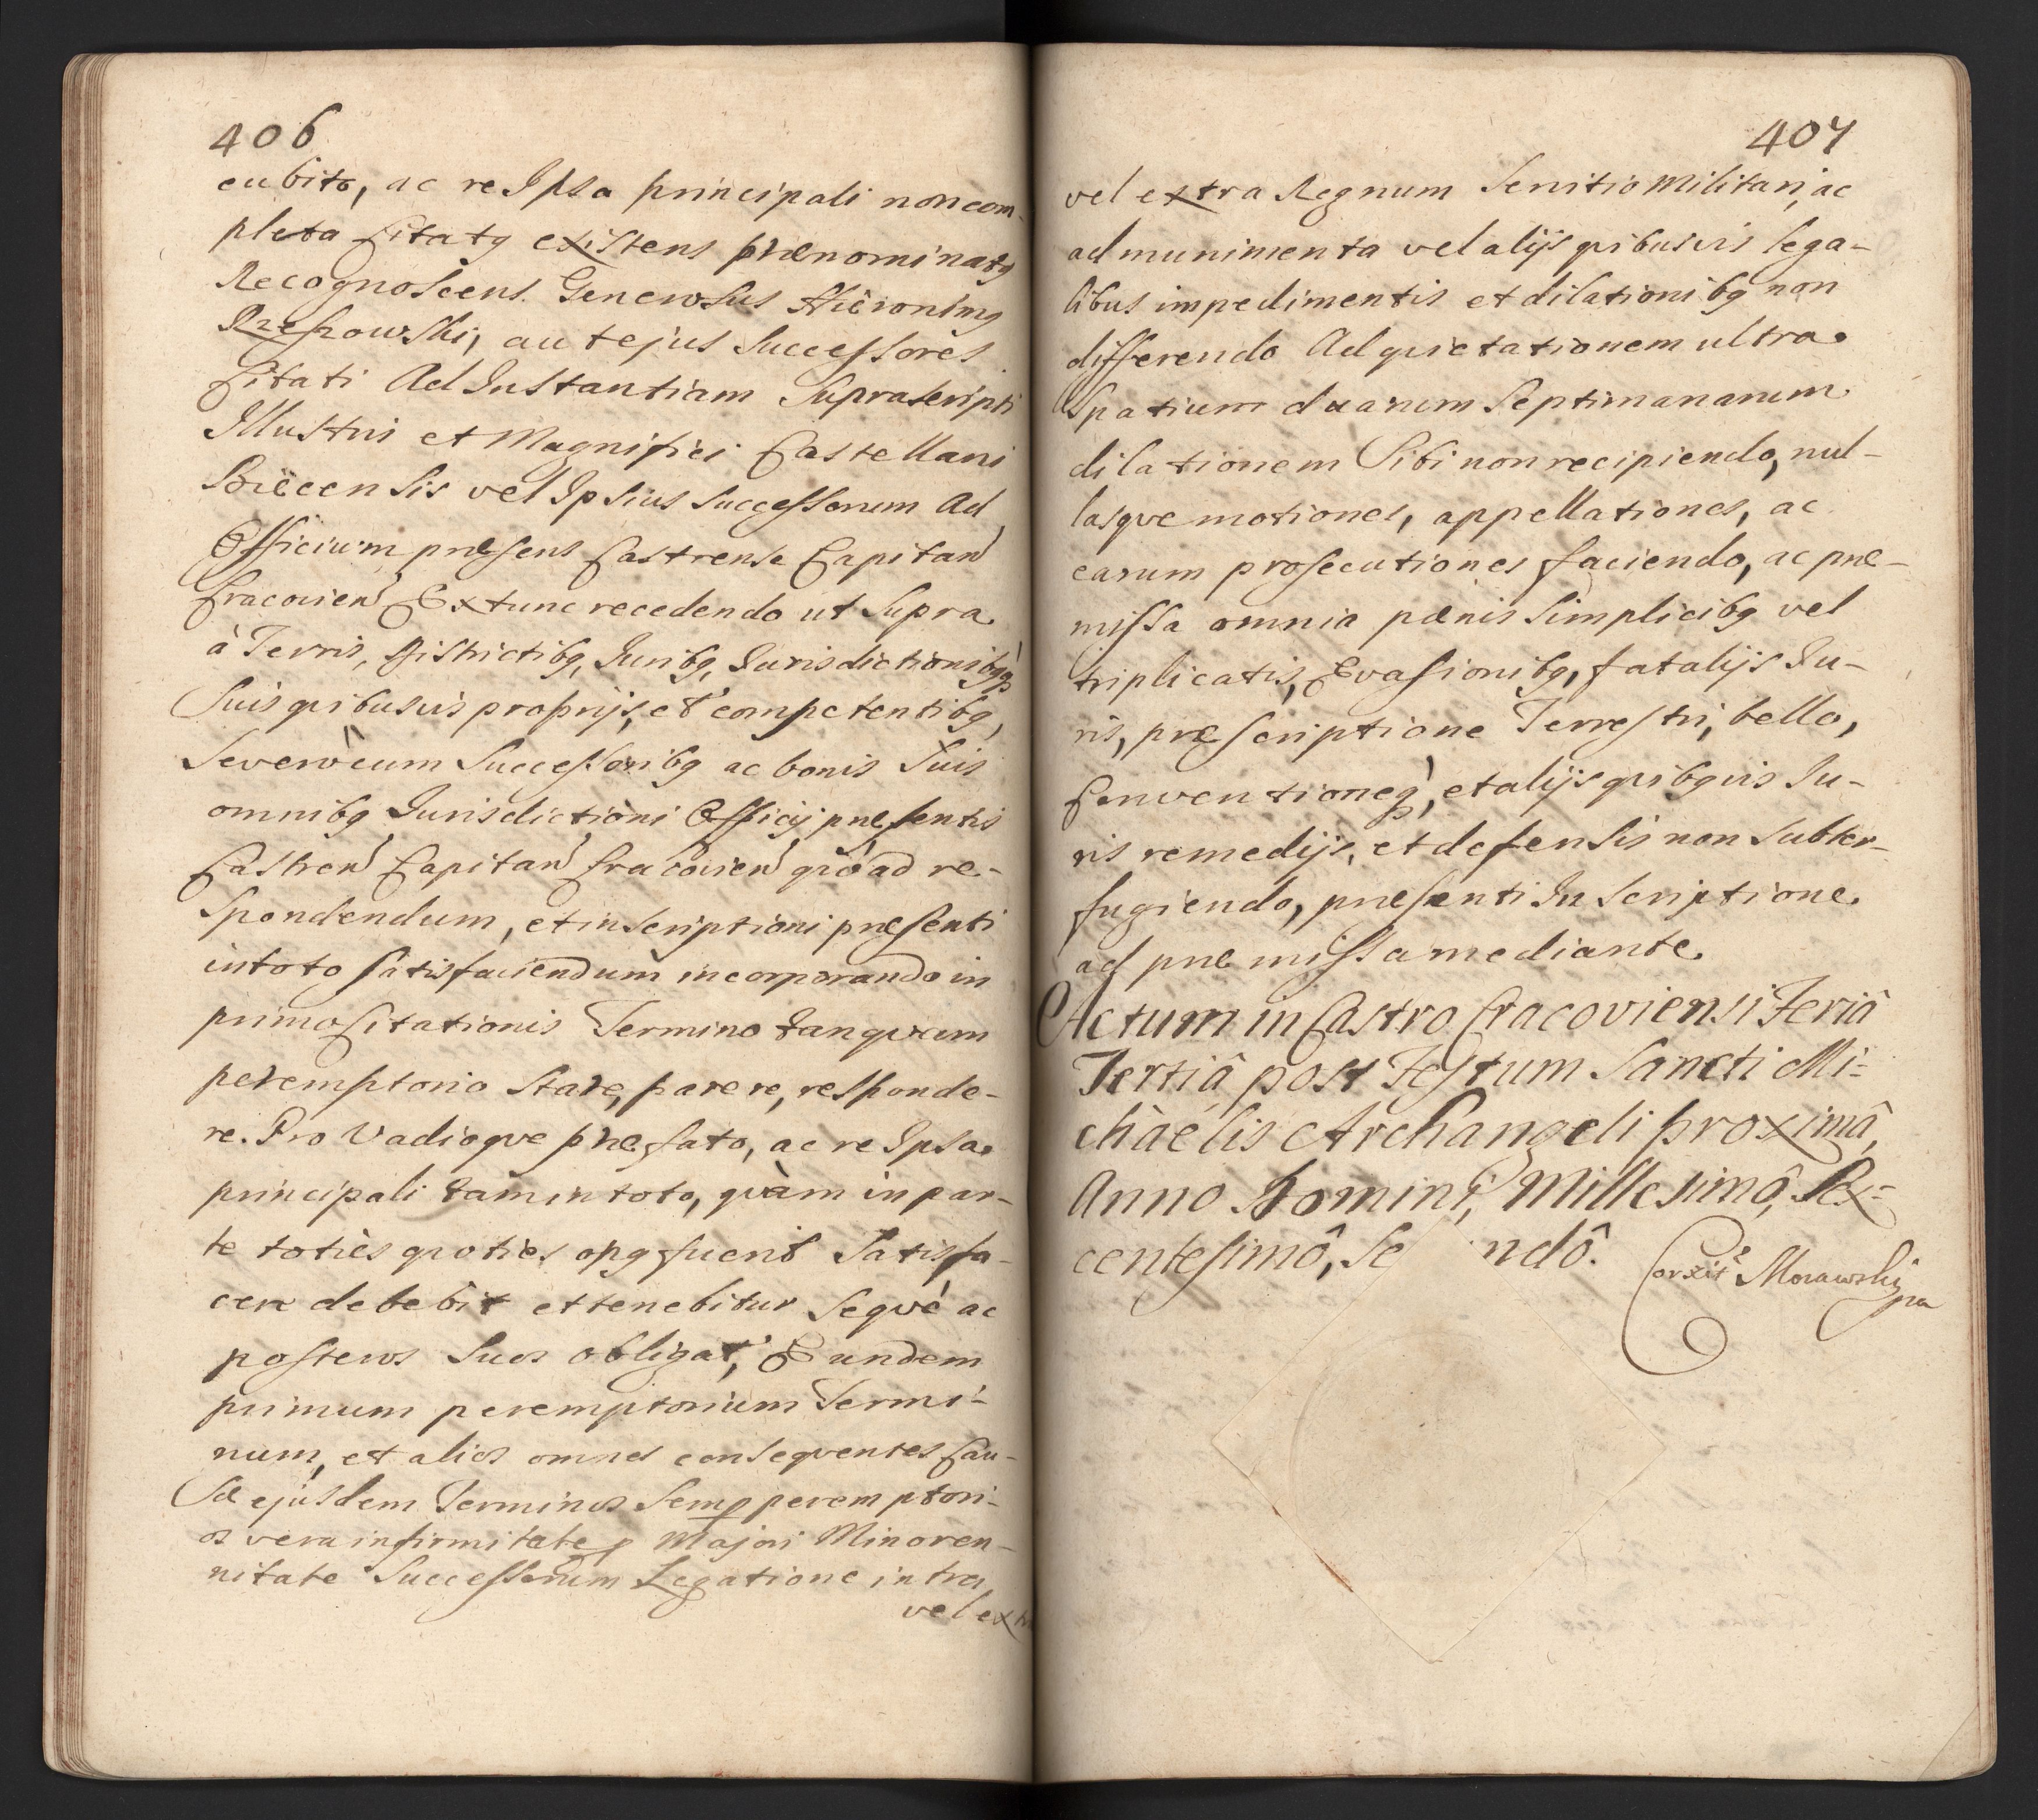 406
cubito, ac re Ipsa principali non com-
pleta Citatq existens prænominatq
Recognoscens. Generosus Hieronimq
Rzeszowski, aut ejus Successores
Citati Ad Instantiam Suprascripti
Illustris et Magnifici Castellani
Biecensis vel Ipsius Successorum Ad
Officium præsens Castrense Capitan̄
Cracovien̄ Extunc recedendo ut Supra
à Terris, Districtibq, Juribq, Jurisdictionibqq
Suis quibusvis proprijs, et competentibq,
Severò cum Successoribq ac bonis Suis
omnibq Jurisdictioni Officij præsentis
Castren̄ Capitan̄ Cracovien̄ quò ad re-
spondendum, et inscriptioni præsenti
in toto Satisfaciendum incorporando in
primo Citationis Termino tanquam
peremptorio Stare, parere, responde-
re. Pro Vadioque præfato, ac re Ipsa
principali tam in toto, quàm in par-
te totiès quoties opq fuerit Satisfa-
cere debebit et tenebitur Sequè ac
posteros Suos obligat, Eundem
primum peremptorium Termi-
num, et alios omnes consequentes Cau-
sæ ejusdem Terminos Semp peremptori-
os vera infirmitate, Majori Minoren-
nitate Successorum Legatione intra,
vel extra
407
vel extra Regnum Servitio Militari, ac
ad munimenta vel alijs quibusvis lega-
libus impedimentis et dilationibq non
differendo Ad quietationem ultra
Spatium duarum Septimanarum
dilationem Sibi non recipiendo, nul-
lasque motiones, appellationes, ac
earum prosecutiones faciendo, ac præ-
missa omnia pænis Simplicibq vel
triplicatis, Evasionibq, fatalijs Ju-
ris, præscriptione Terrestri, bello,
Conventioneq, et alijs quibqvis Ju-
ris remedijs, et defensis non Subter-
fugiendo, præsenti Inscriptione
ad præmissa mediante.
Actum in Castro Cracoviensi Feriâ
Tertiâ post Festum Sancti Mi-
chàélis Archangeli proximâ,
Anno Domini, Millesimô, Sex-
centesimô, Se ndô.
Corxit Morawski